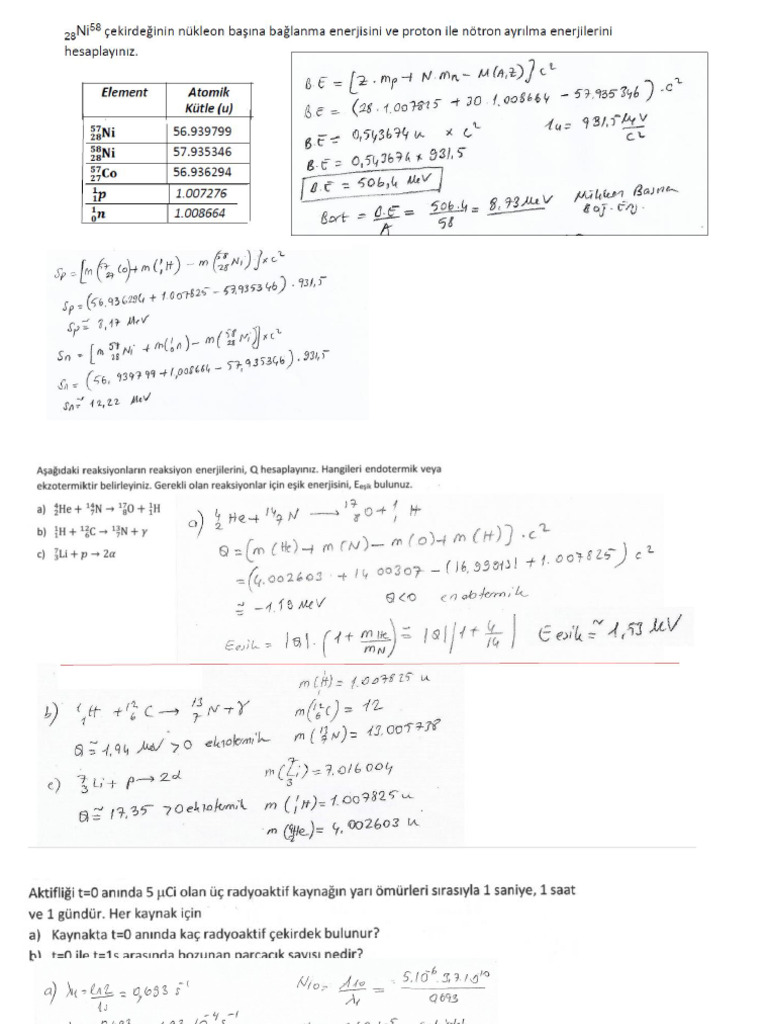 ₂₈Ni⁵⁸ çekirdeğinin nükleon başına bağlanma enerjisini ve proton ile nötron ayrılma enerjilerini
hesaplayınız.
Element Atomik Kütle (u)
⁵⁷₂₈Ni 56.939799
⁵⁸₂₈Ni 57.935346
⁵⁷₂₇Co 56.936294
¹₁p 1.007276
¹₀n 1.008664
BE = [Z.mp + N.mn - M(A,Z)]c²
BE = (28.1.007825 + 30.1.008664 - 57.935346).c²
BE = 0,543674 u x c² 1u = 931,5 MeV/c²
B.E = 0,543674 x 931,5
B.E = 506,4 MeV
Bort = B.E/A = 506.4/58 = 8,73 MeV Nükleon Başına Bağ. Enj.
Sp = [m(⁵⁷₂₇Co) + m(¹₁H) - m(⁵⁸₂₈Ni)] x c²
Sp = (56.936294 + 1.007825 - 57.935346).931,5
Sp ≅ 8,17 MeV
Sn = [m ⁵⁷₂₈Ni + m(¹₀n) - m(⁵⁸₂₈Ni)] x c²
Sn = (56,939799 + 1,008664 - 57,935346).931,5
Sn ≅ 12,22 MeV
Aşağıdaki reaksiyonların reaksiyon enerjilerini, Q hesaplayınız. Hangileri endotermik veya
ekzotermiktir belirleyiniz. Gerekli olan reaksiyonlar için eşik enerjisini, Eeşik bulunuz.
a) ⁴₂He + ¹⁴₇N → ¹⁷₈O + ¹₁H
b) ¹₁H + ¹²₆C → ¹³₇N + γ
c) ⁷₃Li + p → 2α
a) ⁴₂He + ¹⁴₇N → ¹⁷₈O + ¹₁H
Q = [m(He) + m(N) - m(O) + m(H)].c²
= (4.002603 + 14.00307 - (16.999131 + 1.007825) c²
≅ -1.19 MeV Q<0 endotermik
Eeşik = |Q|.(1 + mHe/mN) ≅ |Q||1 + 4/14| Eeşik ≅ 1,53 MeV
m(¹₁H) = 1.007825 u
b) ¹₁H + ¹²₆C → ¹³₇N + γ m(¹²₆C) = 12
Q ≅ 1,94 MeV > 0 ekzotermik m(¹³₇N) = 13.005738
c) ⁷₃Li + p → 2α m(⁷₃Li) = 7.016004
Q ≅ 17,35 > 0 ekzotermik m(¹₁H) = 1.007825 u
m(⁴₂He) = 4.002603 u
Aktifliği t=0 anında 5 µCi olan üç radyoaktif kaynağın yarı ömürleri sırasıyla 1 saniye, 1 saat
ve 1 gündür. Her kaynak için
a) Kaynakta t=0 anında kaç radyoaktif çekirdek bulunur?
b) t=0 ile t=1s arasında bozunan parçacık sayısı nedir?
a) λ₁ = ln2/1s = 0,693 s⁻¹ N₁₀ = A₁₀/λ₁ = 5.10⁻⁶.3,7.10¹⁰/0,693